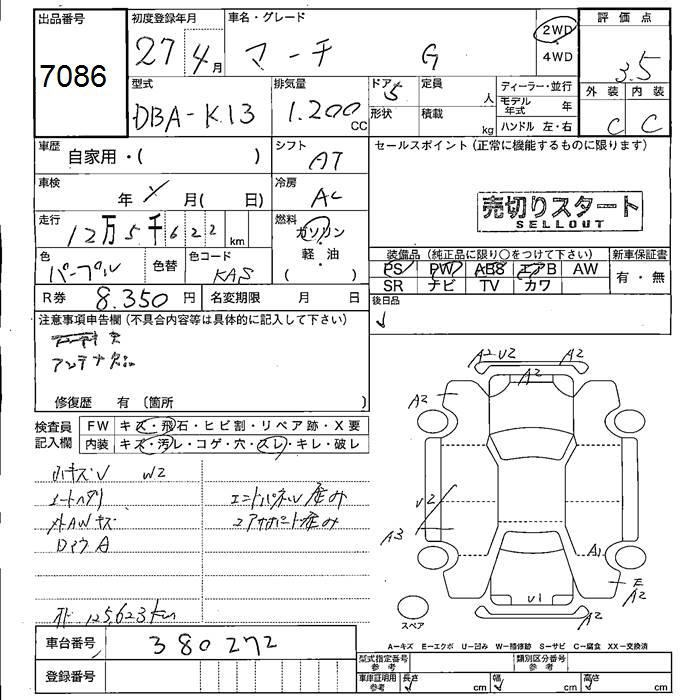 出品番号 初度登録年月 車名・グレード 評価点
7086 27年4月 マーチ G 2WD 4WD 3.5
外装 内装
C C
型式 排気量 ドア 定員 ディーラー・並行
DBA-K13 1.200 CC 5 人 モデル年式 年
形状 積載 kg ハンドル 左・右
車歴 自家用・( ) シフト AT セールスポイント (正常に機能するものに限ります)
車検 年 月( 日) 冷房 AC
売切りスタート
SELLOUT
走行 12万5千622km 燃料 ガソリン
軽・油
( )
色 パープル 色替 色コード KAS
装備品 (純正品に限り○をつけて下さい) 新車保証書
PS PW ABS エアB AW 有・無
SR ナビ TV カワ
R券 8.350円 名変期限 月 日 後日品
注意事項申告欄 (不具合内容等は具体的に記入して下さい)
修復歴 有 (箇所 )
検査員記入欄 FW キズ・飛石・ヒビ割・リペア跡・X要
内装 キズ・汚レ・コゲ・穴・スレ・キレ・破レ
A2 U2 A2
A2
A2
W2
エンドパネル歪み
コアサポート歪み
U2
A3
A1
E
A2
U1
A2
125,623km
スペア
車台番号 380272
A-キズ E-エクボ U-凹み W-補修跡 S-サビ C-腐食 XX-交換済
登録番号
型式指定番号 参考 類別区分番号 参考
車庫証明用 参考 長さ cm 幅 cm 高さ cm